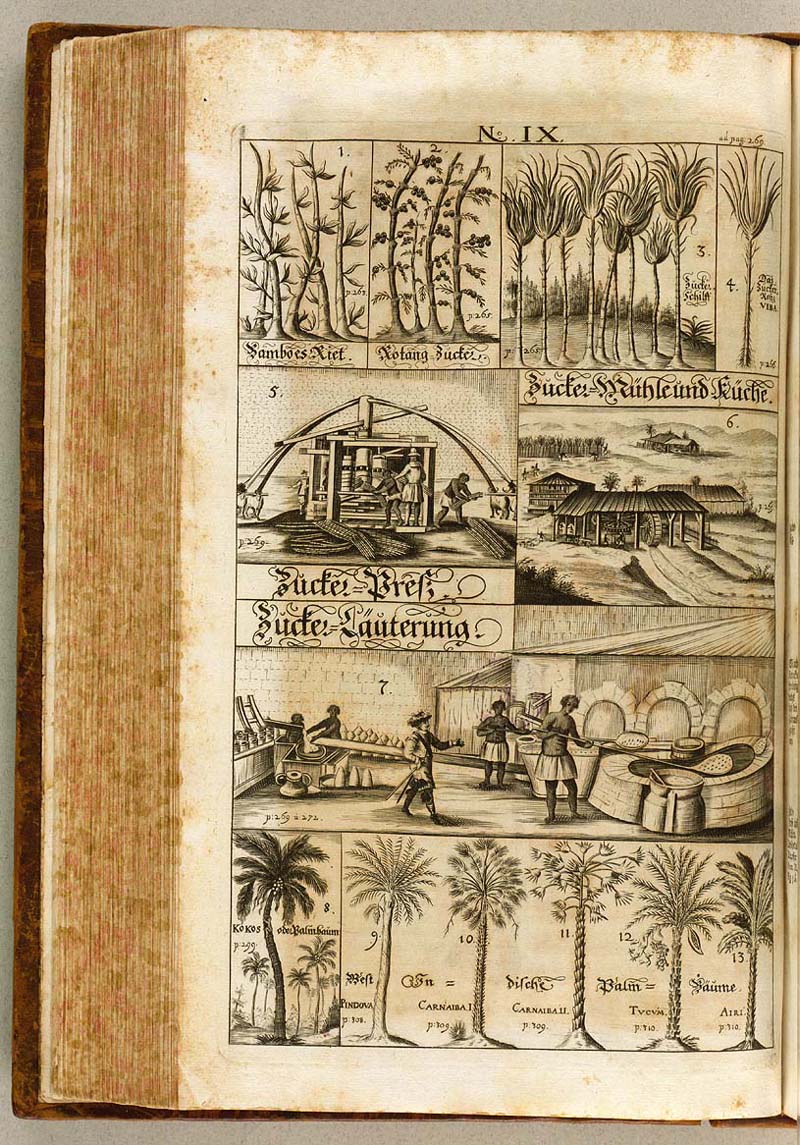 No. IX.
ad pag. 269.
1.
p. 263.
Bamboes Riet.
2.
p. 265.
Rotang Zucker.
3.
Zucker
Schilff
p. 265.
4.
Das
Zucker
Rohr
VIBA
5.
p. 269.
Zucker=Preß.
Zucker=Mühle und Küche.
6.
Zucker=Läuterung.
7.
p: 269 u 272.
8.
KOKOS oder Palmbaum
p. 299.
9. 10. 11. 12. 13.
West In=dische Palm=Bäume.
PINDOVA
p. 308.
CARNAIBA I.
p. 309.
CARNAIBA II.
p. 309.
TUCUM.
p. 310.
AIRI.
p. 310.